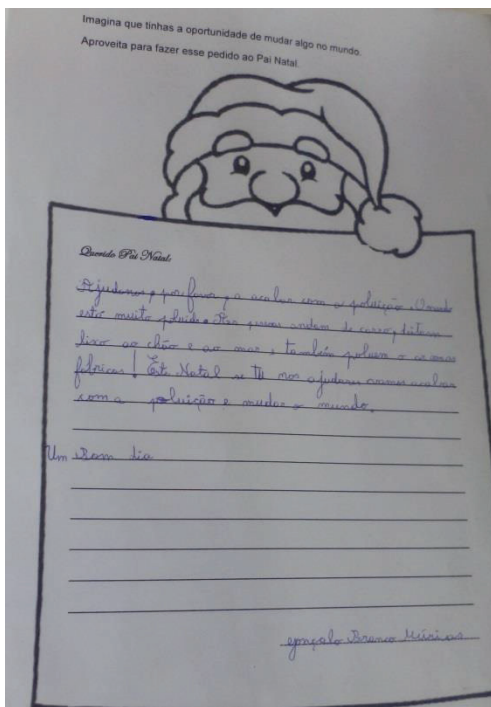 Imagina que tinhas a oportunidade de mudar algo no mundo.
Aproveita para fazer esse pedido ao Pai Natal.
Querido Pai Natal
Ajudanos, porfavor, a acabar com a poluição. O mundo
está muito pluido. As pessoas andam de carro, ditam
lixo ao chão e ao mar e também poluem o ar
fábricas! Este Natal se tu nos ajudares vamos acabar
com a poluição e mudar o mundo.
Um Bom dia
Gonçalo Branco